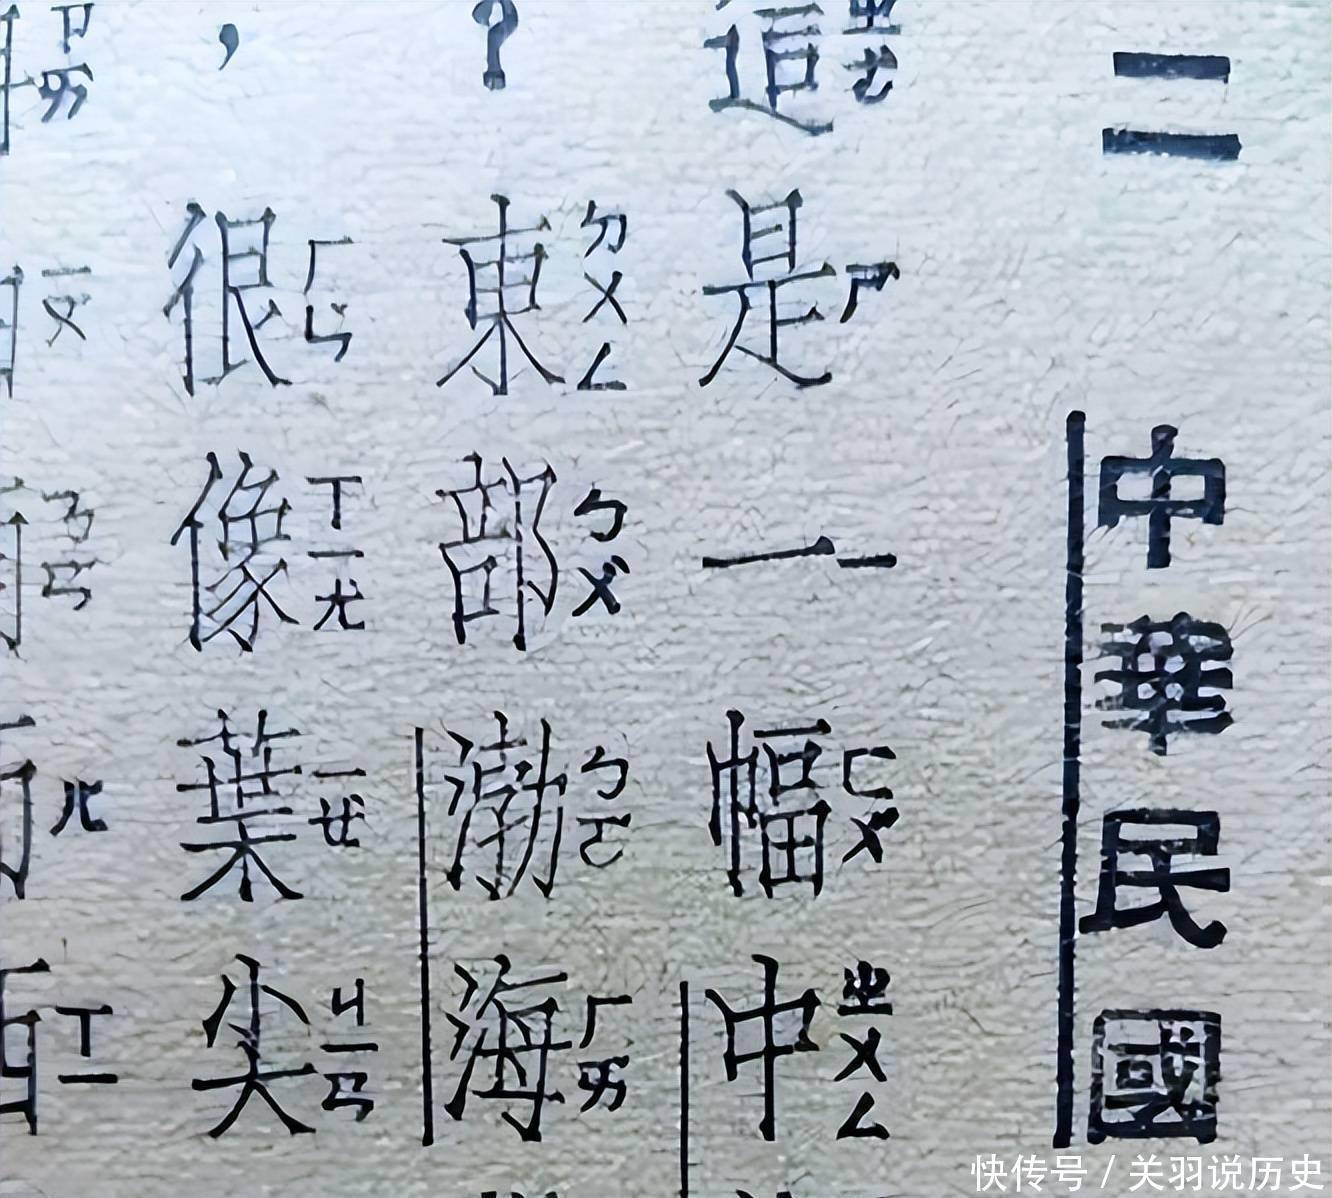 二 中華民國
這ㄓㄜ是ㄕ一ㄧ幅ㄈㄨ中ㄓㄨㄥ
？東ㄉㄨㄥ部ㄅㄨ渤ㄅㄛ海ㄏㄞ
，很ㄏㄣ像ㄒㄧㄤ葉ㄧㄝ尖ㄐㄧㄢ
ㄗㄞ ㄧㄡ ㄋㄢ ㄦ ㄒㄧ
快传号 / 关羽说历史